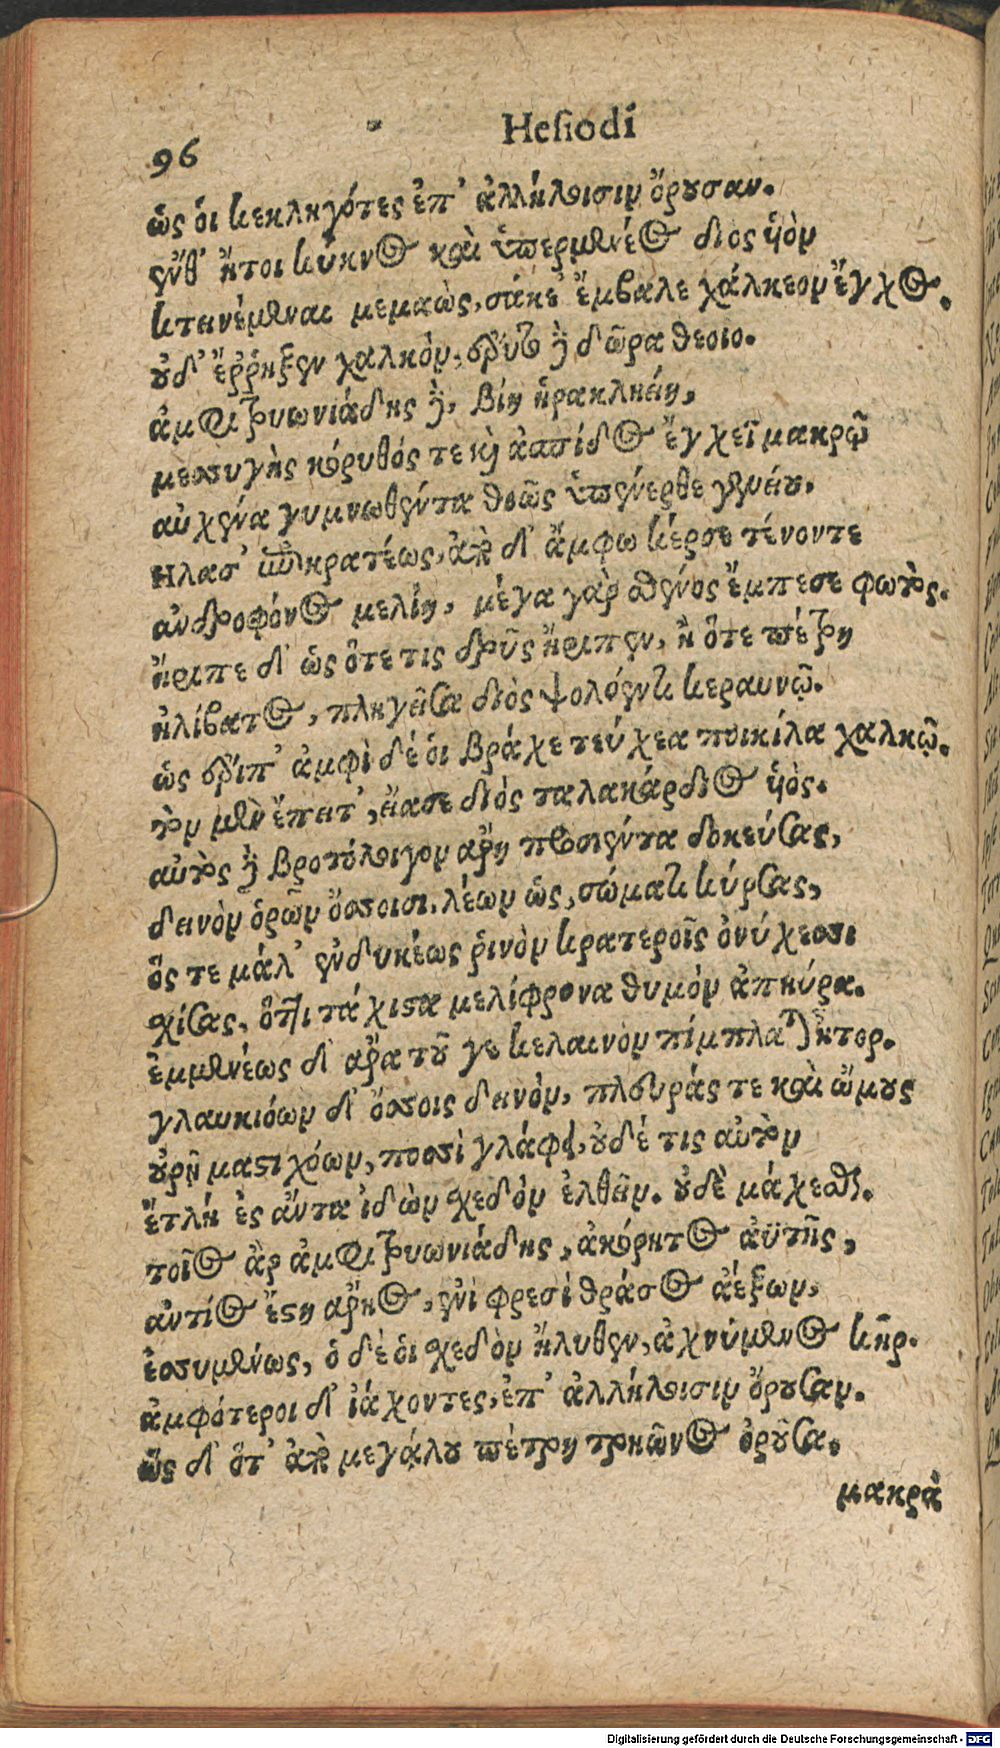 96 Hesiodi
ὣς ὁι κεκληγότες ἐπ' ἀλλήλοισιν ὄρουσαν.
ἔνθ' ἤτοι κύκνος καὶ ὑπερμενέος διὸς ὑὸν
κτεινέμεναι μεμαὼς, σάκει ἔμβαλε χάλκεον ἔγχος.
οὐδ' ἔῤῥηξεν χαλκὸν, ἔρυτο δὲ δῶρα θεοῖο.
ἀμφιτρυωνιάδης δὲ, βίη ἡρακληείη,
μεσσυγὴς κόρυθός τε καὶ ἀσπίδος ἔγχεϊ μακρῷ
αὐχένα γυμνωθέντα θοῶς ὑπένερθε γενείου.
ἤλασ' ἐπικρατέως, ἀπὸ δ' ἄμφω κέρσε τένοντε
ἀνδροφόνος μελίη, μέγα γὰρ σθένος ἔμπεσε φωτός.
ἤριπε δ' ὡς ὅτε τις δρῦς ἤριπεν, ἢ ὅτε πέτρη
ἠλίβατος, πληγεῖσα διὸς ψολόεντι κεραυνῷ.
ὣς ἔριπ' ἀμφὶ δέ ὁι βράχε τεύχεα ποικίλα χαλκῷ.
τὸν μὲν ἔπειτ', εἴασε διὸς ταλακάρδιος ὑὸς.
αὐτὸς δὲ βροτόλοιγον ἄρη προσιόντα δοκεύσας,
δεινὸν ὁρῶν ὄσσοισι. λέων ὣς, σώματι κύρσας,
ὅς τε μάλ' ἐνδυκέως ῥινὸν κρατεροῖς ὀνύχεσσι
σχίσας, ὅττι τάχιστα μελίφρονα θυμὸν ἀπηύρα.
ἐμμενέως δ' ἄρα τοῦ γε κελαινὸν πίμπλαται ἦτορ.
γλαυκιόων δ' ὄσσοις δεινὸν, πλευράς τε καὶ ὤμους
οὐρῇ μαστιχόων, ποσσὶ γλάφει, οὐδέ τις αὐτὸν
ἔτλη ἐς ἄντα ἰδὼν σχεδὸν ἐλθεῖν. οὐδὲ μάχεσθαι.
τοῖος ἂρ ἀμφιτρυωνιάδης, ἀκόρητος ἀϋτῆς,
ἀντίος ἔστη ἄρηος, ἐνὶ φρεσὶ θράσος ἀέξων,
ἐσσυμένως, ὁ δέ ὁι σχεδὸν ἤλυθεν, ἀχνύμενος κῆρ.
ἀμφότεροι δ' ἰάχοντες, ἐπ' ἀλλήλοισιν ὄρουσαν.
ὣς δ' ὅτ' ἀπὸ μεγάλου πέτρη πρηῶνος ὀροῦσα.
μακρὰ
Digitalisierung gefördert durch die Deutsche Forschungsgemeinschaft - DFG